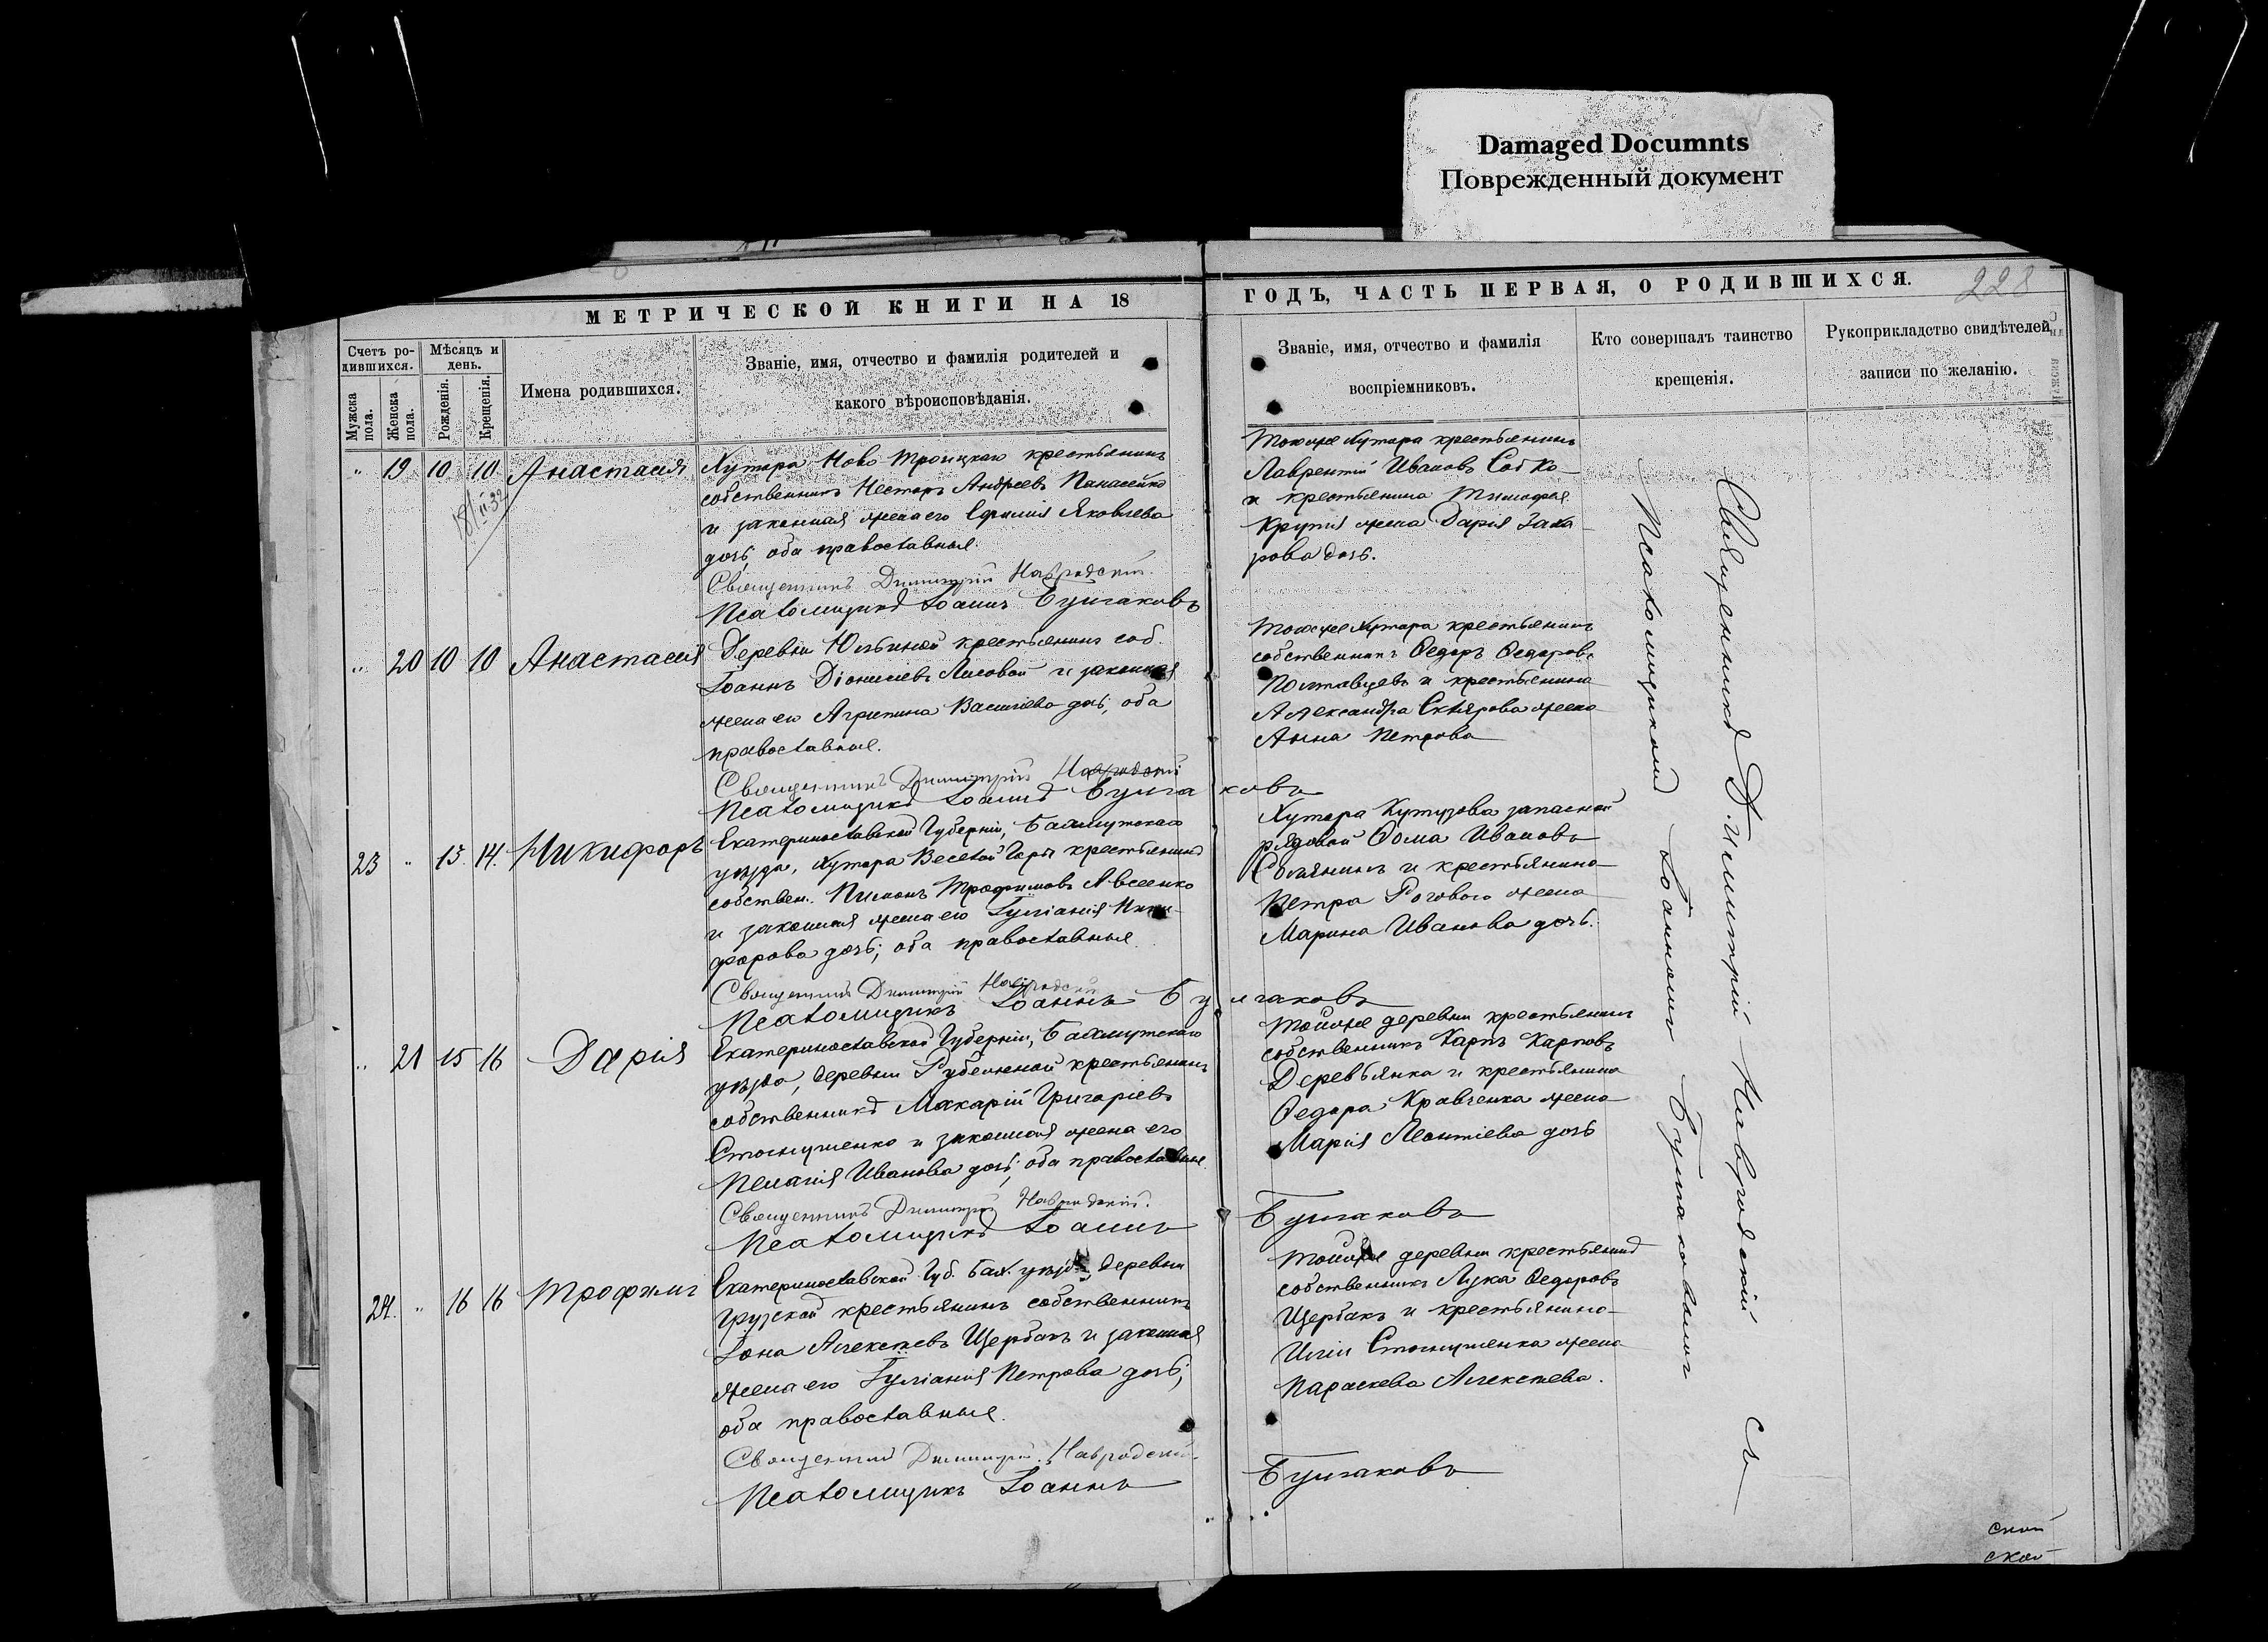 Damaged Documnts
Поврежденный документ
МЕТРИЧЕСКОЙ КНИГИ НА 18
ГОДЪ, ЧАСТЬ ПЕРВАЯ, О РОДИВШИХСЯ.
228
Счетъ ро-
дившихся.
Мужска пола.
Женска пола.
Мѣсяцъ и
день.
Рожденія.
Крещенія.
Имена родившихся.
Званіе, имя, отчество и фамилія родителей и
какого вѣроисповѣданія.
Званіе, имя, отчество и фамилія
воспріемниковъ.
Кто совершалъ таинство
крещенія.
Рукоприкладство свидѣтелей
записи по желанію.
" 19 10 10 Анастасія
Хутора Ново Троицкаго крестьянинъ
собственникъ Несторъ Андреевъ Панасейко
и законная жена его Ефимія Яковлева
дочь, оба православные.
Священникъ Димитрій Навродскій.
Псаломщикъ Іоаннъ Булгаковъ
Тогоже Хутора крестьянинъ
Лаврентій Ивановъ Собко
и крестьянина Тимофея
Крупія жена Дарія Заха
рова дочь.
" 20 10 10 Анастасія
Деревни Юльиной крестьянинъ соб.
Іоаннъ Діонисіевъ Лисовой и законная
жена его Агрипина Василіева дочь, оба
православные.
Священникъ Димитрій Навродскій
Псаломщикъ Іоаннъ Булгаковъ
Тогоже Хутора крестьянинъ
собственникъ Ѳедоръ Ѳедоровъ
Полтавцевъ и крестьянина
Александра Склярова жена
Анна Петрова
23 " 13 14 Никифоръ
Екатеринославской Губерніи, Бахмутскаго
уѣзда, Хутора Веселой Горы крестьянинъ
собствен. Пименъ Трофимовъ Авсеенко
и законная жена его Іуліанія Ники-
форова дочь; оба православные
Священникъ Димитрій Навродскій
Псаломщикъ Іоаннъ Булгаковъ
Хутора Кутузова запасной
рядовой Ѳома Ивановъ
и крестьянина
Петра Рогового жена
Марина Иванова дочь.
" 21 15 16 Дарія
Екатеринославской Губерніи, Бахмутскаго
уѣзда, деревни Рубежной крестьянинъ
собственникъ Макарій Григоріевъ
Стогнушенко и законная жена его
Пелагія Иванова дочь; оба православные
Священникъ Димитрій Навродскій.
Псаломщикъ Іоаннъ Булгаковъ
Тойже деревни крестьянинъ
собственникъ Карпъ Карповъ
Деревьянка и крестьянина
Ѳедора Кравченка жена
Марія Леонтіева дочь
24. " 16 16 Трофимъ
Екатеринославской Губ. Бах. уѣзда деревни
Грузской крестьянинъ собственникъ
Іона Алексѣевъ Щербакъ и законная
жена его Іуліанія Петрова дочь;
оба православные.
Священникъ Димитрій Навродскій.
Псаломщикъ Іоаннъ Булгаковъ
Тойже деревни крестьянинъ
собственникъ Лука Ѳедоровъ
Щербакъ и крестьянина
Иліи Стогнушенка жена
Параскева Алексѣева.
Священникъ Димитрій Навродскій съ
Псаломщикомъ Іоанномъ Булгаковымъ
ской
ской